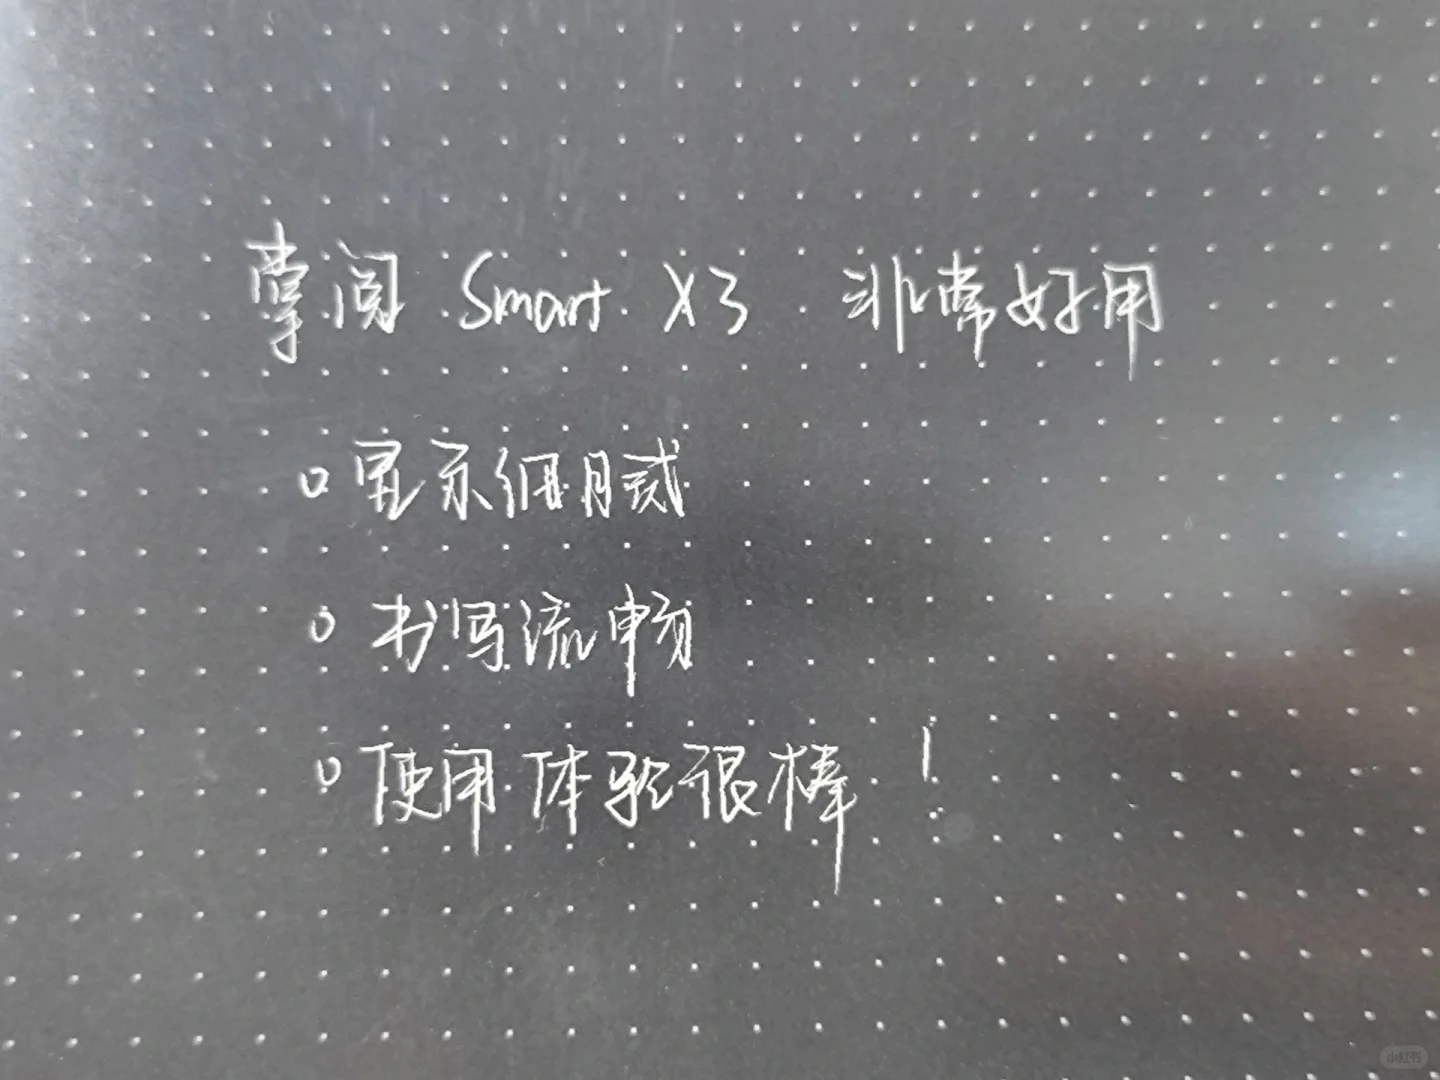 掌阅 Smart X3 非常好用
o 显示细腻
o 书写流畅
o 使用体验很棒！
小红书